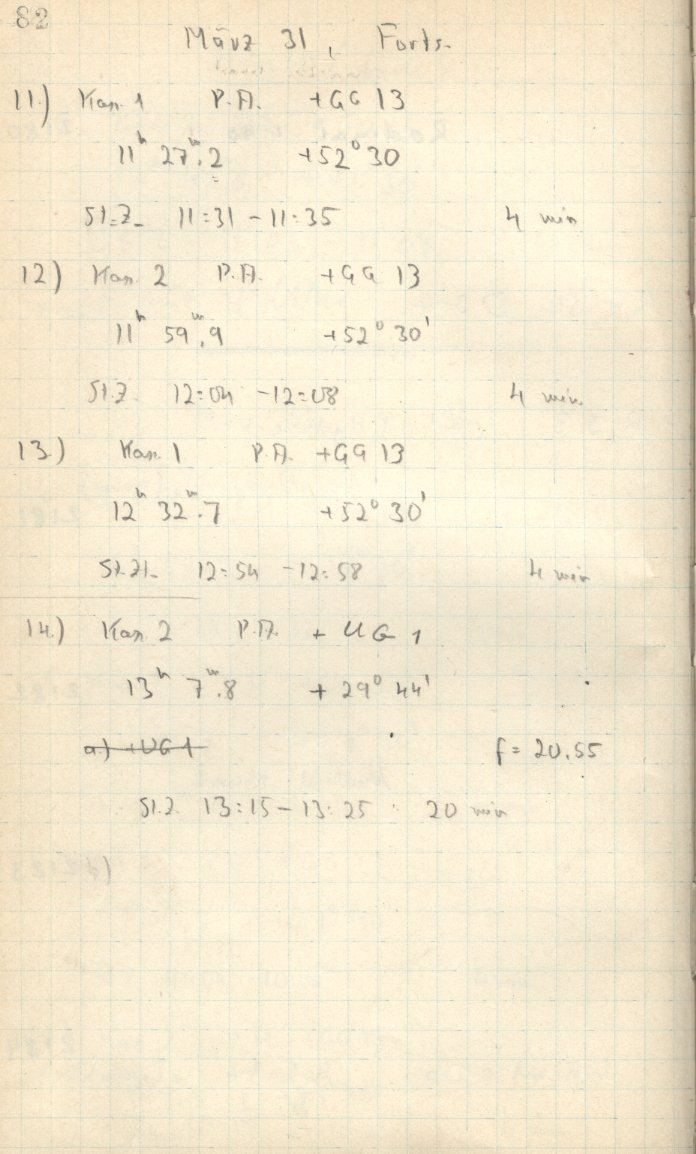 82
März 31, Forts.
11.) Kas. 1 P.A. +GG 13
11ʰ 27ᵐ.2 +52° 30
St.Z. 11:31 - 11:35 4 min
12) Kas. 2 P.A. +GG 13
11ʰ 59ᵐ.9 +52° 30'
St.Z. 12:04 - 12:08 4 min
13.) Kas. 1 P.A. +GG 13
12ʰ 32ᵐ.7 +52° 30'
St.Zt. 12:54 - 12:58 4 min
14.) Kas. 2 P.A. + UG 1
13ʰ 7ᵐ.8 + 29° 44'
a.) +UG 1 f = 20.55
St.Z. 13:15 - 13:25 20 min